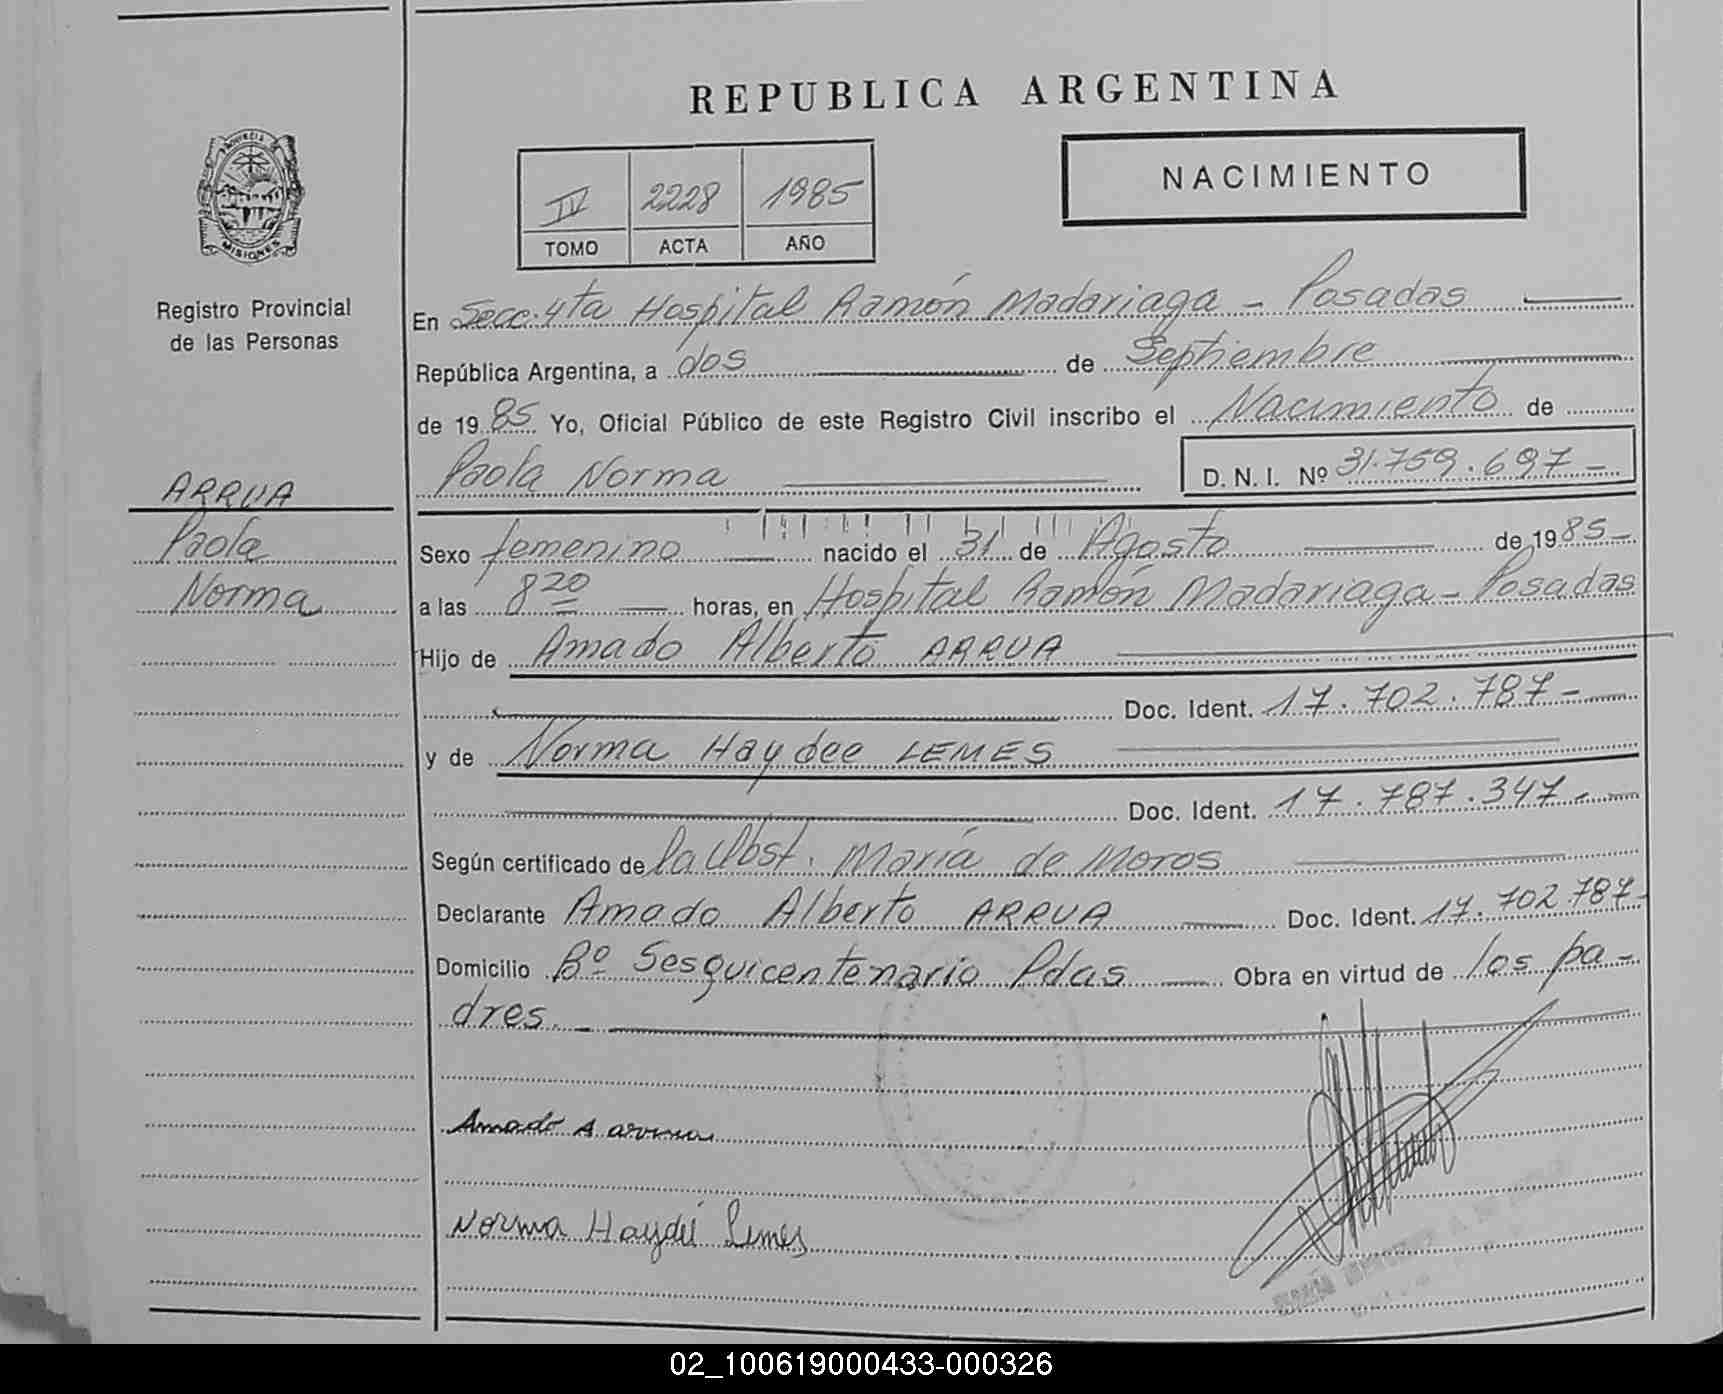 REPUBLICA ARGENTINA
PROVINCIA
MISIONES
Registro Provincial
de las Personas
IV 2228 1985
TOMO ACTA AÑO
NACIMIENTO
En Secc. 4ta Hospital Ramón Madariaga - Posadas
República Argentina, a dos de Septiembre
de 1985 Yo, Oficial Público de este Registro Civil inscribo el Nacimiento de
Paola Norma D. N. I. Nº 31.759.697-
ARRUA
Paola
Norma
Sexo femenino nacido el 31 de Agosto de 1985-
a las 8 20 horas, en Hospital Ramón Madariaga - Posadas
Hijo de Amado Alberto ARRUA
Doc. Ident. 17.702.787-
y de Norma Haydee LEMES
Doc. Ident. 17.787.347.-
Según certificado de la Obst. María de Moros
Declarante Amado Alberto ARRUA Doc. Ident. 17.702.787-
Domicilio Bº Sesquicentenario Pdas Obra en virtud de los pa-
dres.-
Amado A arrua
Norma Haydeé Lemes
02_100619000433-000326